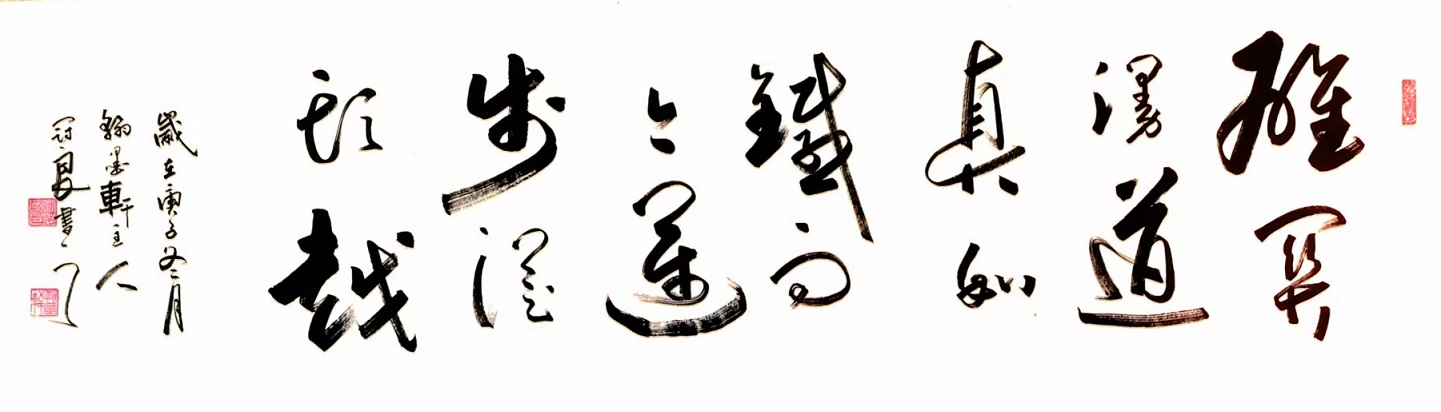 雄關
漫道
真如
鐵而
今邁
步從
頭越
歲在庚子冬月
翰墨軒主人
冠夏書